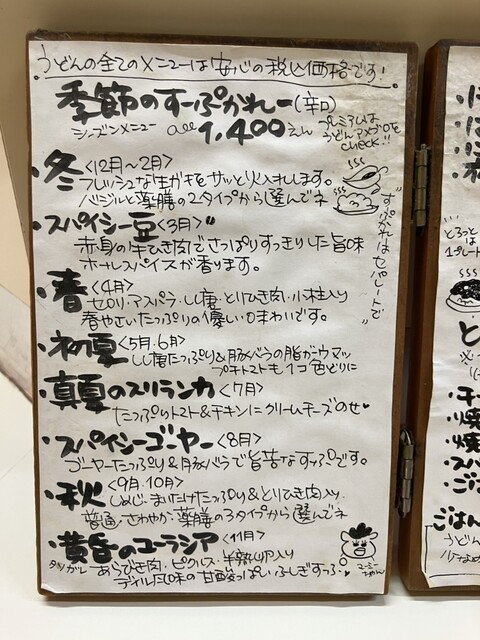 うどんの全てのメニューは安心の税込価格です!
季節のすーぷかれー(辛口)
シーズンメニュー all 1,400えん
プレミアムは
うどんアメブロを
check!!
・冬<12月~2月>
フレッシュな生ガキをサッと火入れします。
バニラと薬膳の2タイプから選んでネ
"すぷかれはセパレートで"
・スパイシー豆<3月>
赤身の牛ひき肉でさっぱりすっきりした旨味
ホールスパイスが香ります。
・春<4月>
セロリ・アスパラ・しし唐・とりひき肉・小柱入り
春やさいたっぷりの優しい味わいです。
・初夏<5月.6月>
しし唐たっぷり&豚バラの脂がウマッ
プチトマトも1コ色どりに
・真夏のスリランカ<7月>
たっぷりトマト&チキンにクリームチーズのせ♥
・スパイシーゴーヤー<8月>
ゴーヤーたっぷり&豚バラで旨苦なすっぷです。
・秋<9月.10月>
しめじ・まいたけたっぷり&とりひき肉入り。
普通、さわやか、薬膳の3タイプから選んでネ
・黄昏のユーラシア<11月>
あらびき肉・ピクルス・半熟
ディルた
味の甘酸っぱいふしぎすっぷ
とろっと
は
1プレート
ごはん
うどん